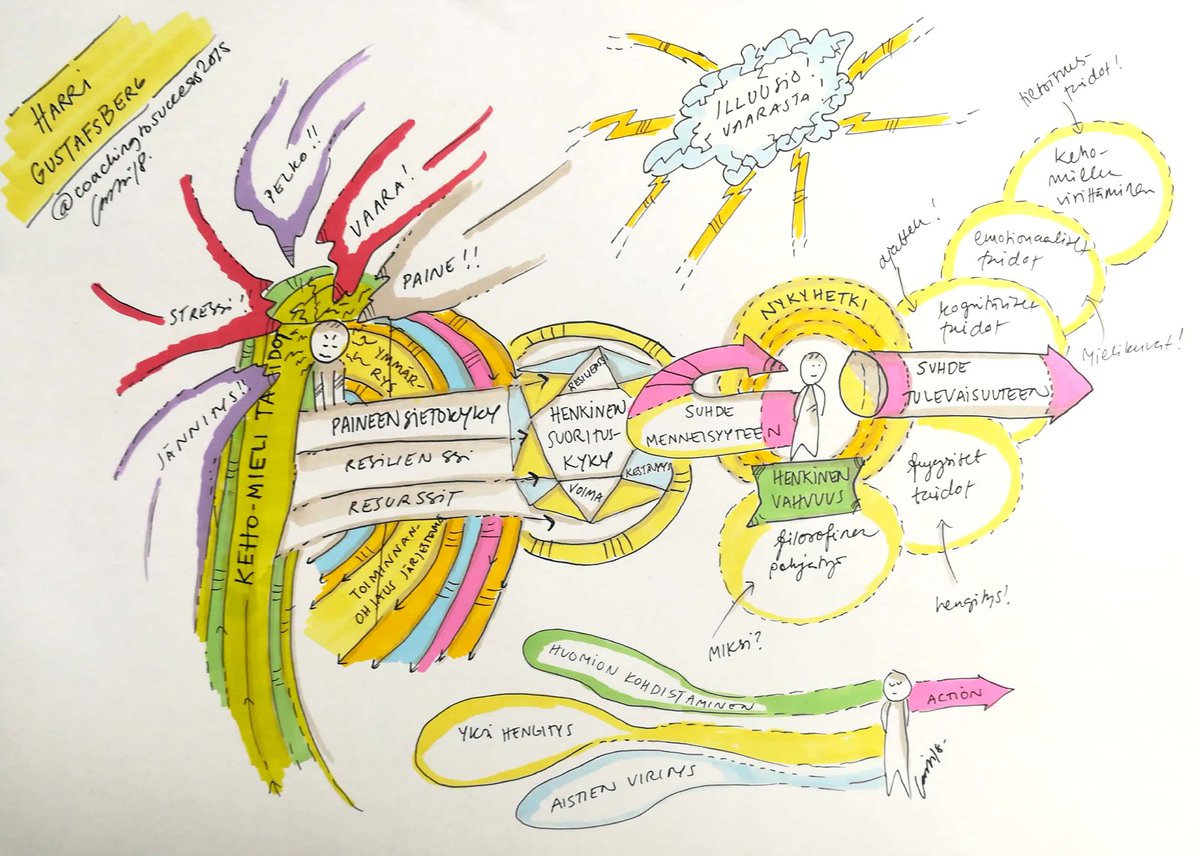 HARRI
GUSTAFSBERG
@coachingtosuccess2015
PELKO!!
VAARA!
STRESSI!
PAINE!!
JÄNNITYS!!
KEHO-MIELI TAIDOT
YMMÄR-
RYS
PAINEENSIETOKYKY
RESILIENSSI
RESURSSIT
TOIMINNAN-
OHJAUS JÄRJESTELMÄ
RESILIENSSI
HENKINEN
SUORITUS-
KYKY
KESTÄVYYS
VOIMA
ILLUUSIO
VAARASTA!
SUHDE
MENNEISYYTEEN
NYKYHETKI
HENKINEN
VAHVUUS
SUHDE
TULEVAISUUTEEN
tietoisuus-
taidot!
keho-
mielen
virittäminen
emotionaaliset
taidot
Mielikuvat!
ajattelu!
kognitiiviset
taidot
fyysiset
taidot
hengitys!
filosofinen
pohjatyö
MIKSI?
HUOMION KOHDISTAMINEN
YKSI HENGITYS
AISTIEN VIRITYS
ACTION